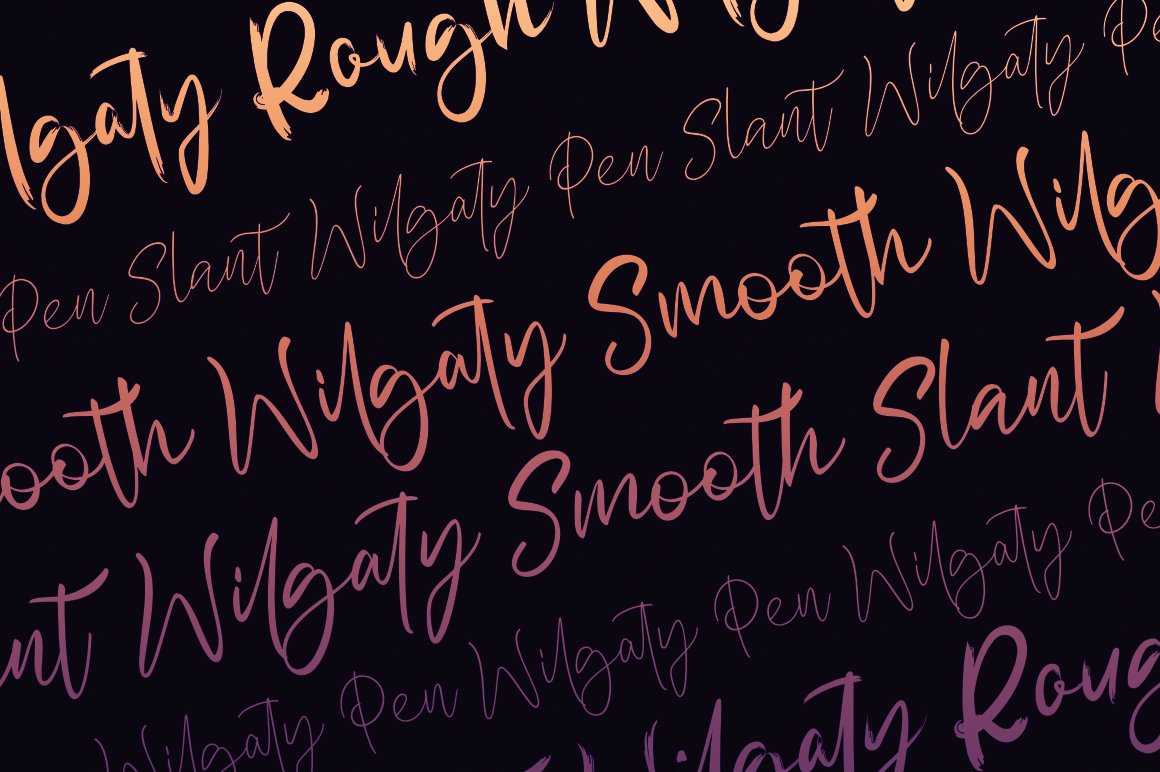 Wilgaty Rough Wilgaty
Pen Slant Wilgaty Pen Slant Wilgaty Pen
Smooth Wilgaty Smooth Wilgaty
Slant Wilgaty Smooth Slant
Wilgaty Pen Wilgaty Pen Wilgaty Pen
Wilgaty Rough